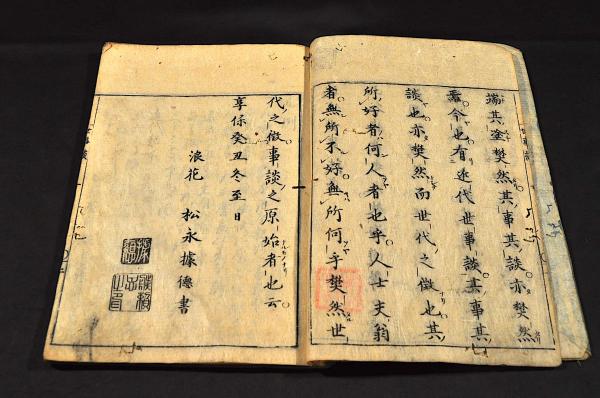 端其塗樊然其事其談亦樊然
焉今也有近代世事談其事其
談也亦樊然而世代之徴也其
所好者何人者也乎人士夫翁
者無所不好無所何乎樊然世
代之徴事談之原始者也云
享保癸丑冬至日
浪花 松永據德書